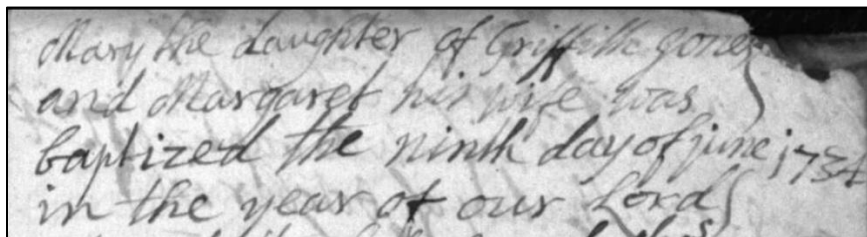 Mary the daughter of Griffith Jones
and Margaret his wife was
baptized the ninth day of june 1734
in the year of our Lord